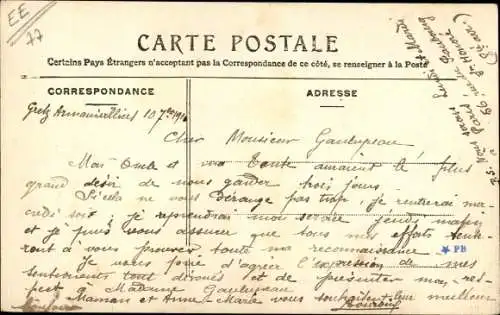 EE
77
CARTE POSTALE
Certains Pays Étrangers n'acceptant pas la Correspondance de ce côté, se renseigner à la Poste
CORRESPONDANCE
ADRESSE
Gretz Armainvilliers 10 7bre 191
Cher Monsieur Gaulupeau
Mon Oncle et ma Tante auraient le plus
grand désir de nous garder trois jours.
Si cela ne vous dérange pas trop, je rentrerai mer
credi soir; je reprendrai mon service jeudi matin
et je puis vous assurer que tous mes efforts tend-
ront à vous prouver toute ma reconnaissance.
PB
Je vous prie d'agréer l'expression de mes
sentiments tout dévoués et de présenter mon res-
pect à Madame Gaulupeau
Maman et Anne-Marie vous souhaitent leur meilleur
bonjour
P.S. Nous serons Lundi et Mardi
à Paris
66, rue du Faubourg
St Honoré